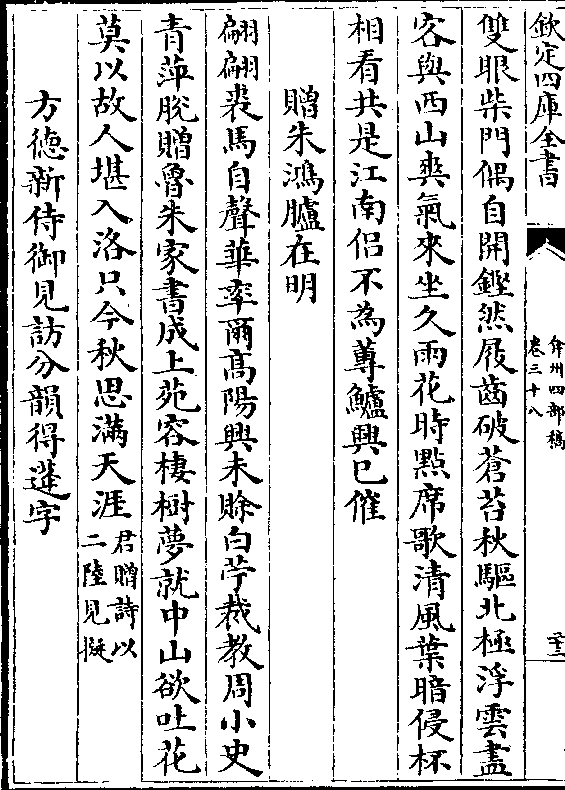 欽定四庫全書
弇州四部稿
卷三十八
二十三
雙眼柴門偶自開鏗然屐齒破蒼苔秋驅北極浮雲盡
客與西山爽氣來坐久雨花時點席歌清風葉暗侵杯
相看共是江南侣不為蓴鱸興已催
贈朱鴻臚在明
翩翩裘馬自聲華率爾髙陽興未賖白苧裁教周小史
青萍脱贈魯朱家書成上苑容棲樹夢就中山欲吐花
莫以故人堪入洛只今秋思滿天涯君贈詩以二陸見擬
方徳新侍御見訪分韻得蓮字